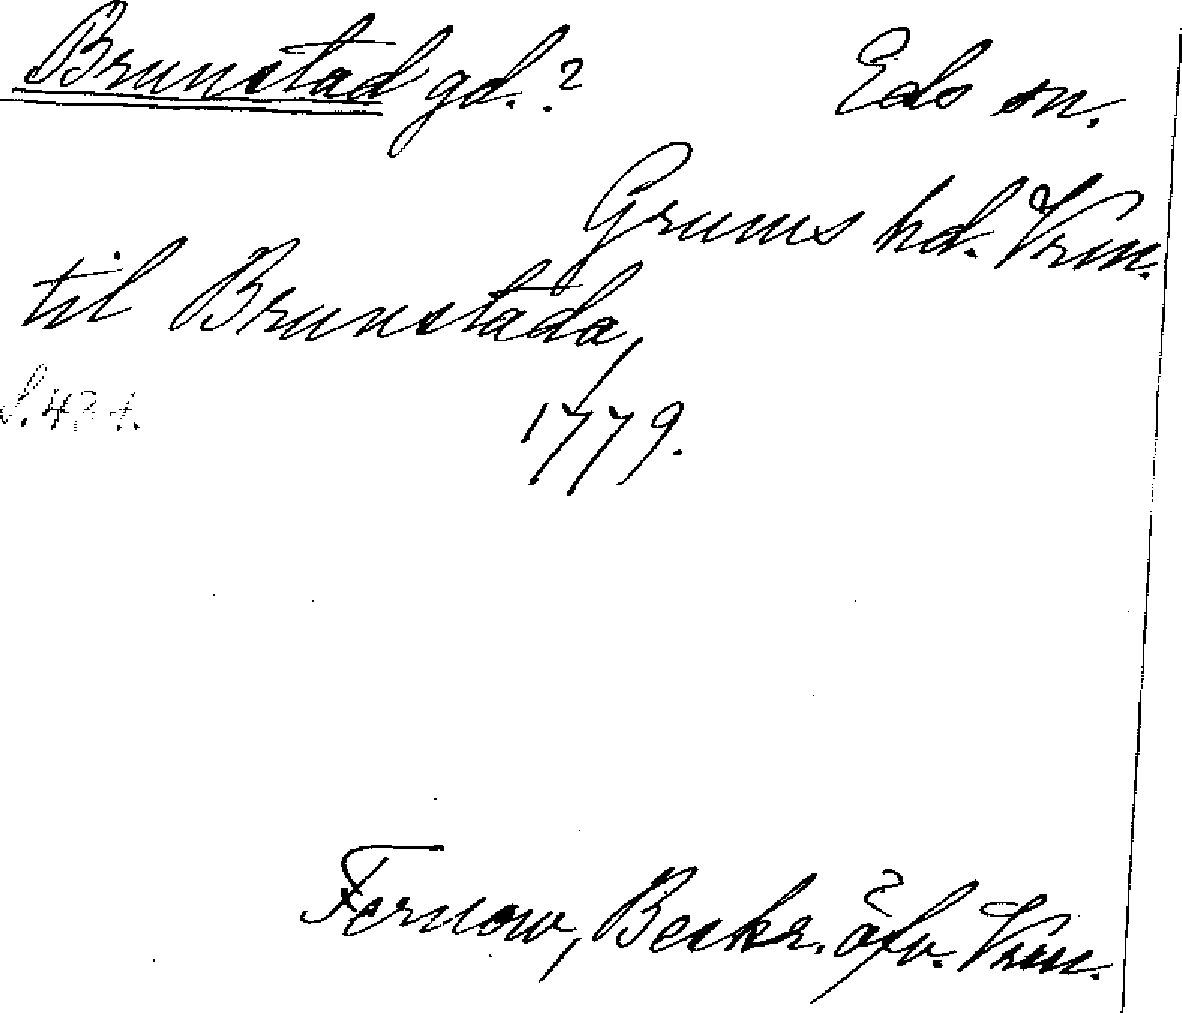 Brunstad gd.? Eds sn.
Grums hd. Vrm.
til Brunstada,
S. 434.
1779.
Fernow, Beskr. öfv. Vrm.